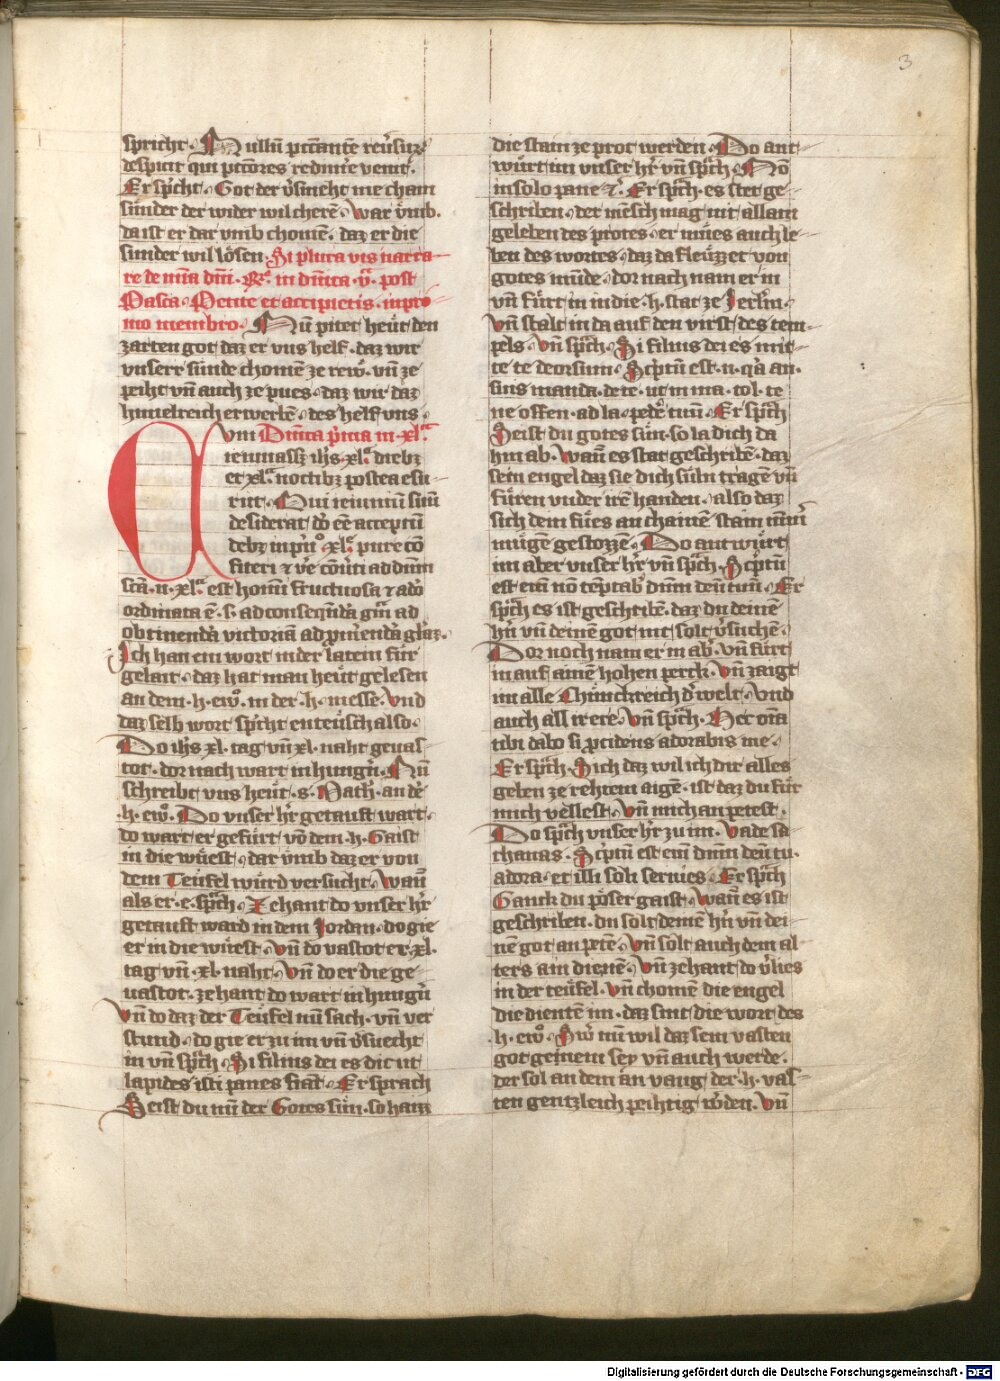 3
spricht. Nullũ peccantẽ reũsurũ
despicit qui pccõres redimẽ venit.
Er spͥcht. Got der ṽsmeht nie chain
sünder der wider wil cherẽ. War vͤmb.
da ist er dar vmb chomẽ. daz er die
sünder wil lösen. Si plura vis narra-
re de mĩa dñi. Rͤ. in dñica .v̊. post
Pasca. Petite et accipietis. in pri-
mo membro. Nũ pitet heüt den
zarten got daz er vns helf. daz wir
vnsere sünde chomẽ ze rew̃. vñ ze
peiht vñ auch ze pues. daz wir daz
himelreich erwerbẽ. des helf vns.
Cum Dñica pͥma in .xlͣ.
ieiunassz ihs .xlͣ. diebz
et xlͣ. noctibz postea esu-
riit. Qui ieiuniũ suũ
desiderat dõ eẽ acceptũ
debz in pͥnͦ .xlͣ. pure cõ-
fiteri et ṽe cõũti ad dñm
scã .n. xlͣ. est homĩ fructuosa et a dõ
ordinata ẽ. s. ad conseqũdã grãm ad
obtinendã victoriã ad pmẽrendã glãz.
Ich han ein wort in der latein für
gelait. daz hat man heüt gelesen
an dem .h. ew̃. in der .h. messe. Vnd
daz selb wort spͥcht enteüsch also.
Do ihs xl. tag vñ xl. naht geuas-
tot. dor nach wart in hungñ. Nũ
schreibt vns heüt .s. Math̃. an dẽ
.h. ew̃. Do vnser hͥr getauft wart.
do wart er gefürt võ dem .h. Gaist
in die wüest. dar vͤmb daz er von
dem Teüfel würd versucht. Wañ
als er .e. spͣch. Zehant do vnser hͥr
getauft ward in dem Jordan. do gie
er in die wüest. Vñ do vastot er .xl.
tag vñ .xl. naht. Vñ do er die ge-
uastot. zehant do wart in hungñ
Vñ do daz der Teüfel nũ sach. vñ ver
stund. do gie er zu im vñ ṽsuecht
in vñ spͣch. Si filius dei es dic ut
lapides isti panes fiãt. Er sprach
Seist du nũ der Gotes sün. so haizz
die stain ze prot werden. Do ant
würt im vnser hͥr vñ spͣch. Nõ
in solo pane et c̃. Er spͣch. es stet ge-
schriben. der mẽsch mag nit allain
geleben des protes. er mües auch le-
ben des wortes. daz da fleüzzet von
gotes mũde. dor nach nam er in
vñ fürt in in die .h. stat ze Jerlm̃.
Vñ stalt in da auf den virst des tem-
pels. Vñ spͣch. Si filius dei es mit-
te te deorsum. Scͥptũ est .n. qͣ an-
ğlis manda. de te. ut in ma. tol. te
ne offen. ad la. pedẽ tuũ. Er spͣch
Seist du gotes sün. so la dich da
hin ab. Wañ es stat geschribẽ. daz
sein engel daz sie dich süln tragẽ vñ
füren vnder irẽ handen. also daz
sich dem fües an chainẽ stain nim̃
mügẽ gestozzẽ. Do antwürt
im aber vnser hͥr vñ spͣch. Scͥptũ
est eim nõ tẽptabͣ dñm deũ tuũ. Er
spͣch es ist geschribẽ. daz du deinẽ
hͥñ vñ deinẽ got nit solt ṽsuchẽ.
Dor noch nam er in abͦ. vñ fürt
in auf ainẽ hohen perck. Vñ zaigt
im alle Chünckreich dͥ welt. Vnd
auch all ir ere. Vñ spͣch. Hec oĩa
tibi dabo si pcidens adorabis me.
Er spͣch. Sich daz wil ich dir alles
geben ze rehtem aigẽ. ist daz du für
mich vellest. Vñ mich an petest.
Do spͣch vnser hͥr zu im. Vade sa-
thanas. Scͥptũ est eim̃ dñm deũ tu.
adora. et illi soli seruies. Er spͣch
Ganck du pöser gaist. Wañ es ist
geschriben. du solt deinẽ hͥñ vñ dei-
nẽ got an petẽ. Vñ solt auch dem al-
ters ain dienẽ. Vñ zehant do ṽlies
in der teüfel. Vñ chomẽ die engel
die dientẽ im. daz sint die wort des
.h. ew̃. Sw̃ nũ wil daz sein vasten
got genem sey vñ auch werde.
der sol an dem an vang der .h. vas-
ten gentzleich peihtig w̃den. Vñ
Digitalisierung gefördert durch die Deutsche Forschungsgemeinschaft - DFG